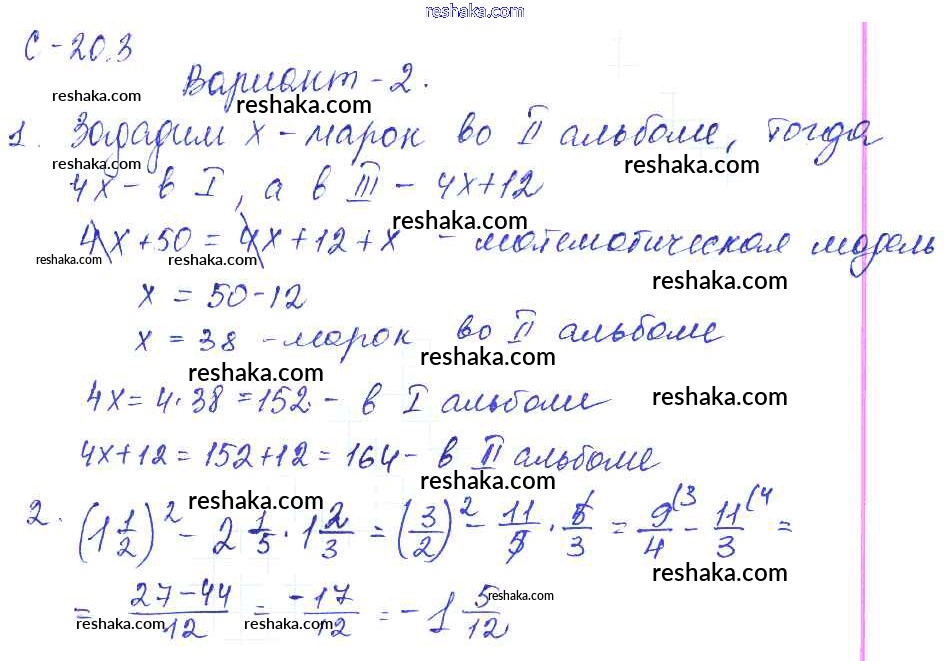 reshaka.com
С-20.3
Вариант-2.
reshaka.com reshaka.com
1. Зададим x - марок во II альбоме, тогда
reshaka.com reshaka.com
4x - в I, а в III - 4x+12
reshaka.com
4x+50 = 4x+12+x - математической модель
reshaka.com reshaka.com reshaka.com
x = 50-12
x = 38 - марок во II альбоме
reshaka.com reshaka.com
4x = 4·38 = 152 - в I альбоме
reshaka.com
4x+12 = 152+12 = 164 - в II альбоме
reshaka.com reshaka.com
2. (1 1/2)² - 2 1/5 · 1 2/3 = (3/2)² - 11/5 · 5/3 = 9/4 (3 - 11/3 (4 =
reshaka.com
= 27-44/12 = -17/12 = -1 5/12
reshaka.com reshaka.com reshaka.com